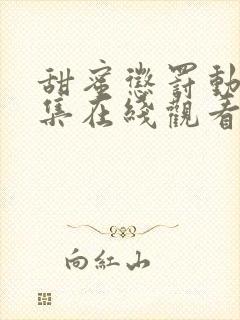 甜蜜懲罰動
集在綫觀看
向紅山